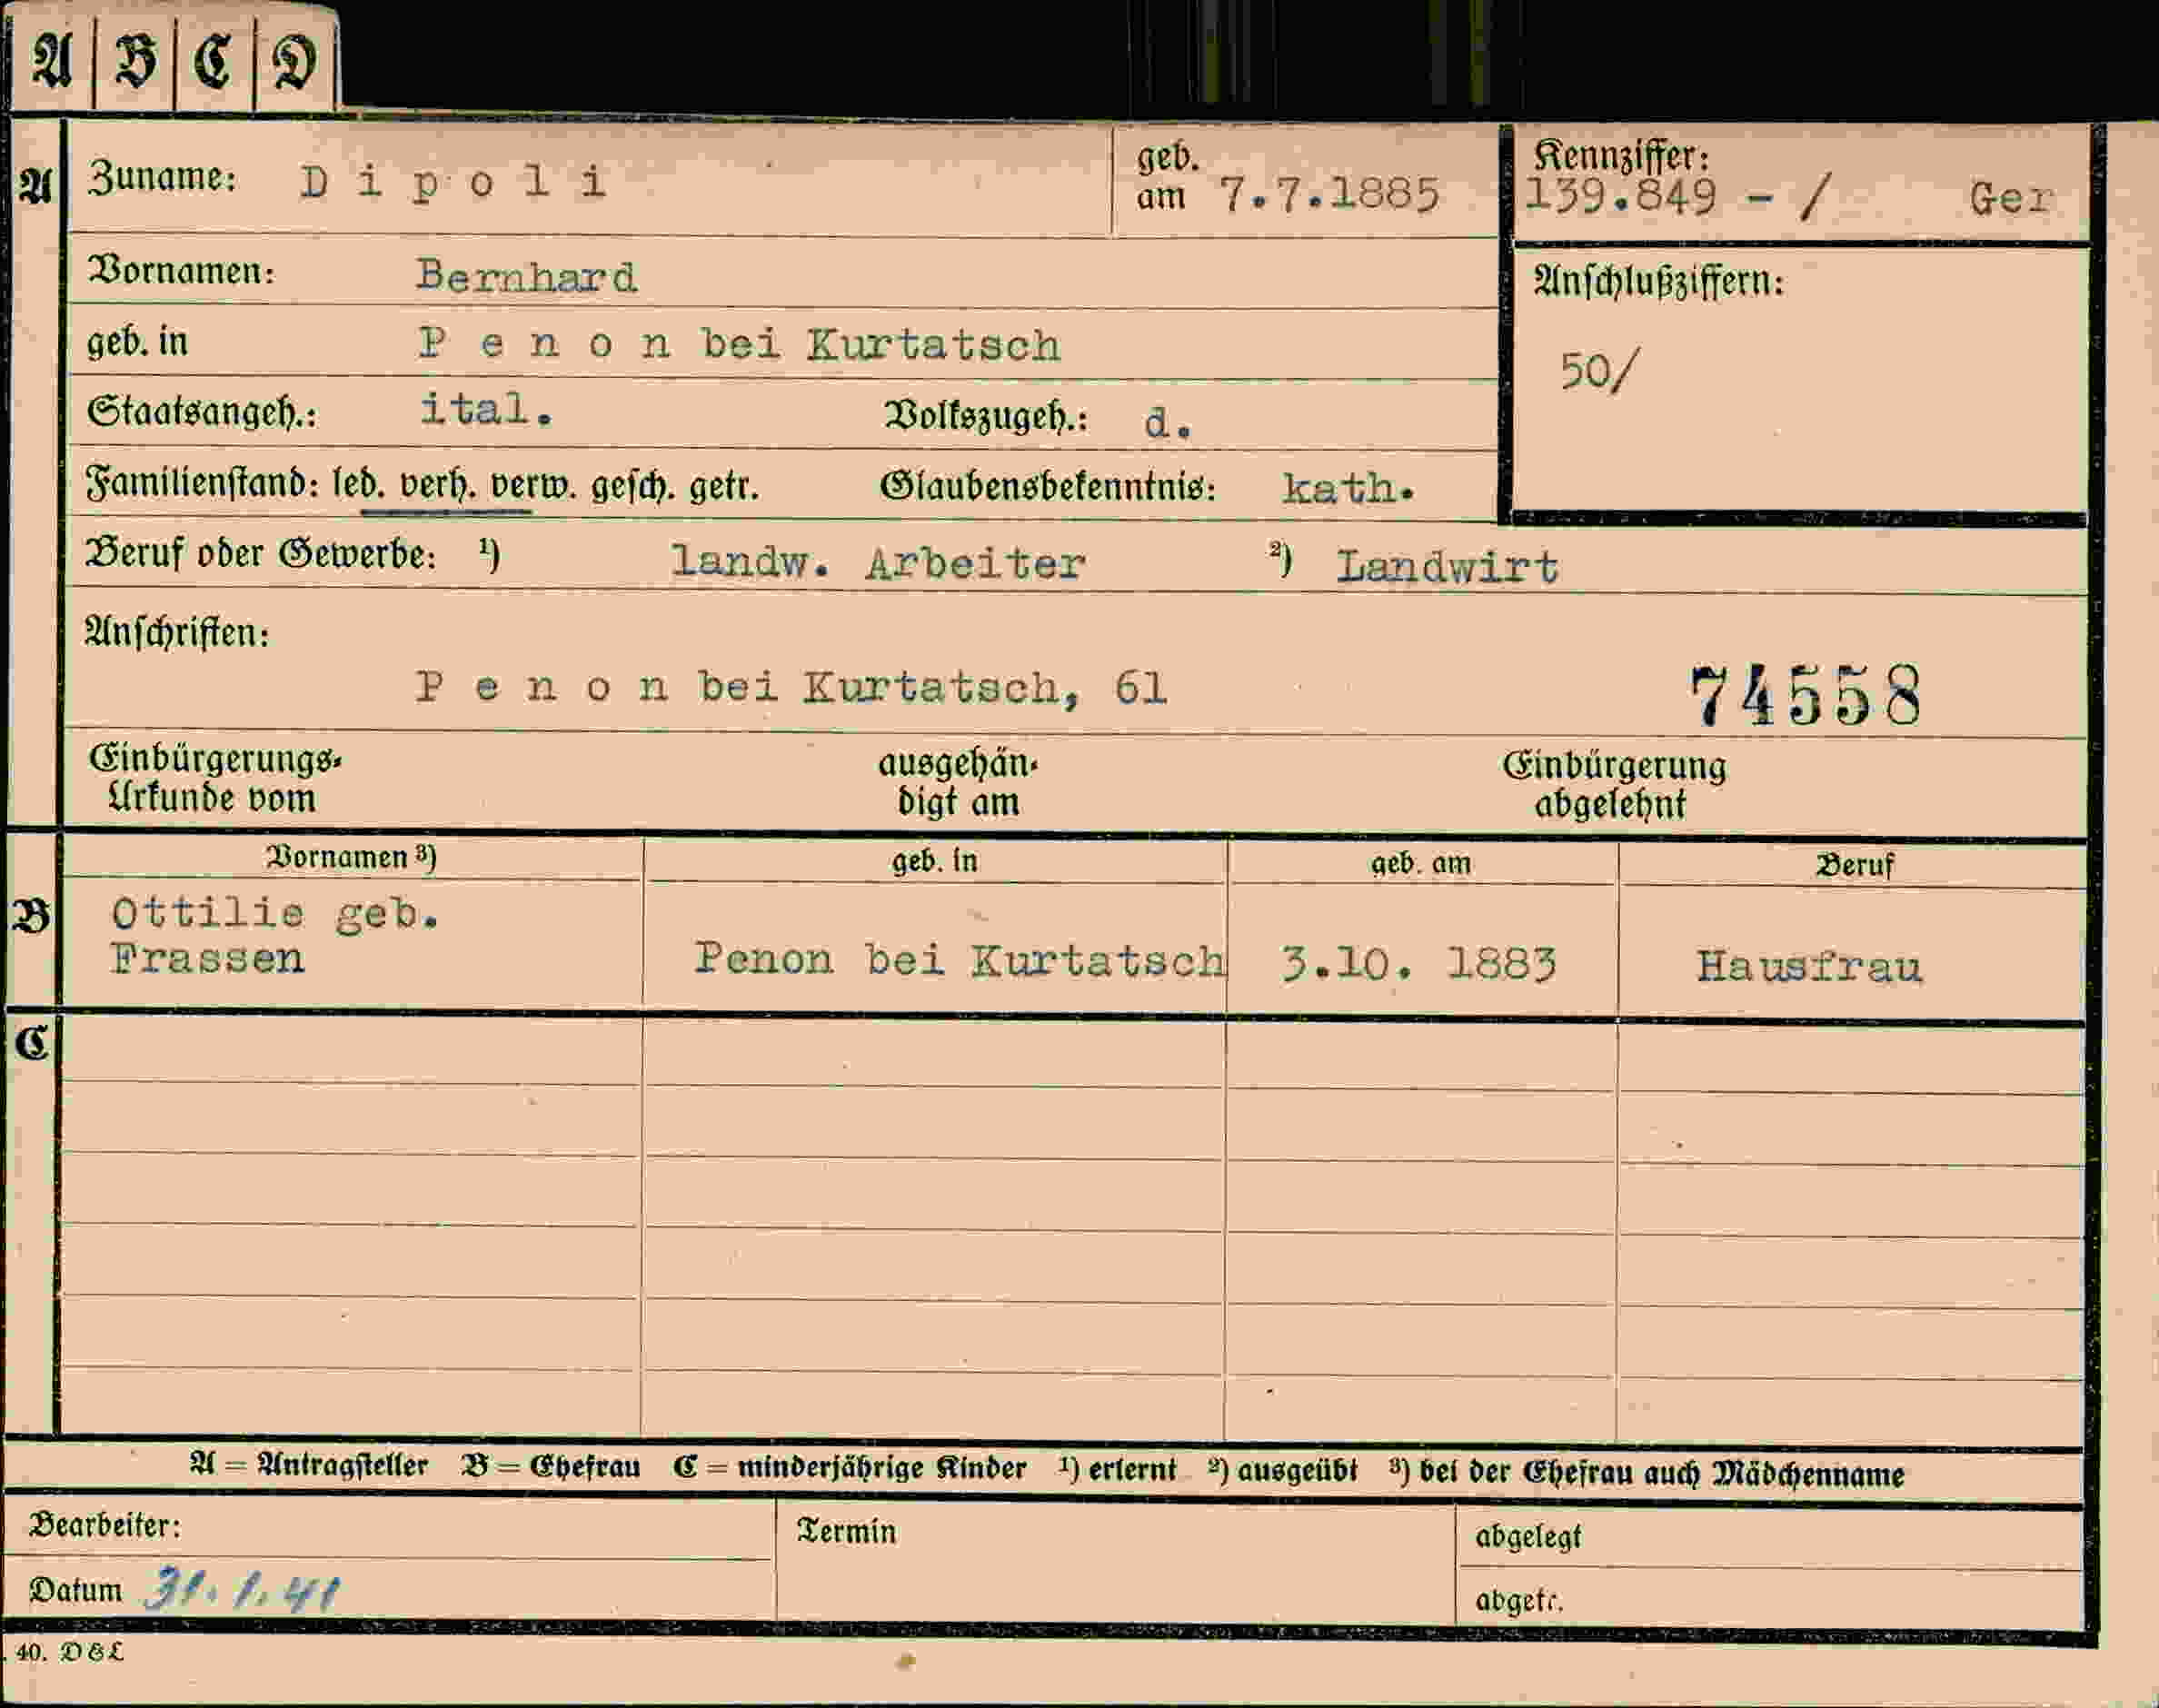 A B C D
A Zuname: Dipoli geb. am 7.7.1885 Kennziffer: 139.849 - / Ger
Vornamen: Bernhard
Anschlußziffern:
geb. in Penon bei Kurtatsch
50/
Staatsangeh.: ital. Volkszugeh.: d.
Familienstand: led. verh. verw. gesch. getr. Glaubensbekenntnis: kath.
Beruf oder Gewerbe: ¹) landw. Arbeiter ²) Landwirt
Anschriften:
Penon bei Kurtatsch, 61 74558
Einbürgerungs- ausgehän- Einbürgerung
Urkunde vom digt am abgelehnt
Vornamen ³) geb. in geb. am Beruf
B Ottilie geb.
Frassen Penon bei Kurtatsch 3.10. 1883 Hausfrau
C
A = Antragsteller B = Ehefrau C = minderjährige Kinder ¹) erlernt ²) ausgeübt ³) bei der Ehefrau auch Mädchenname
Bearbeiter: Termin abgelegt
Datum 31.1.41 abgetr.
. 40. D&L